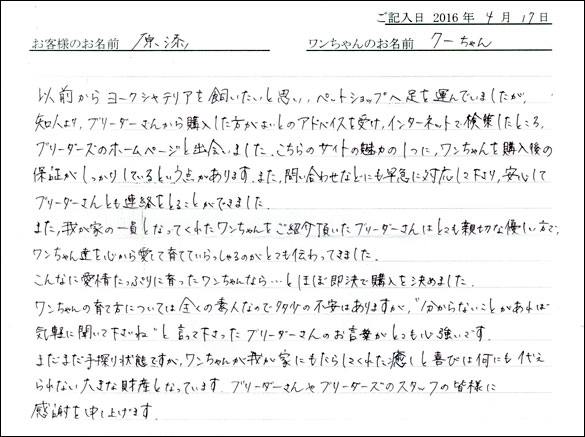 ご記入日 2016年 4月 17日
お客様のお名前 原添 ワンちゃんのお名前 クーちゃん
以前からヨークシャテリアを飼いたいと思い、ペットショップへ足を運んでいましたが、
知人より、ブリーダーさんから購入した方がよいとのアドバイスを受け、インターネットで検索したところ、
ブリーダーズのホームページと出会いました。こちらのサイトの魅力の1つに、ワンちゃんを購入後の
保証がしっかりしているという点があります。また、問い合わせなどにも早急に対応して下さり、安心して
ブリーダーさんとも連絡をとることができました。
また、我が家の一員となってくれたワンちゃんをご紹介頂いたブリーダーさんはとても親切な優しい方で、
ワンちゃん達を心から愛して育てていらっしゃるのがとても伝わってきました。
こんなに愛情たっぷりに育ったワンちゃんなら…とほぼ即決で購入を決めました。
ワンちゃんの育て方については全くの素人なので多少の不安はありますが、"分からないことがあれば
気軽に聞いて下さいね"と言って下さったブリーダーさんのお言葉がとても心強いです。
まだまだ手探り状態ですが、ワンちゃんが我が家にもたらしてくれた癒しと喜びは何にも代え
られない大きな財産となっています。ブリーダーさんやブリーダーズのスタッフの皆様に
感謝を申し上げます。